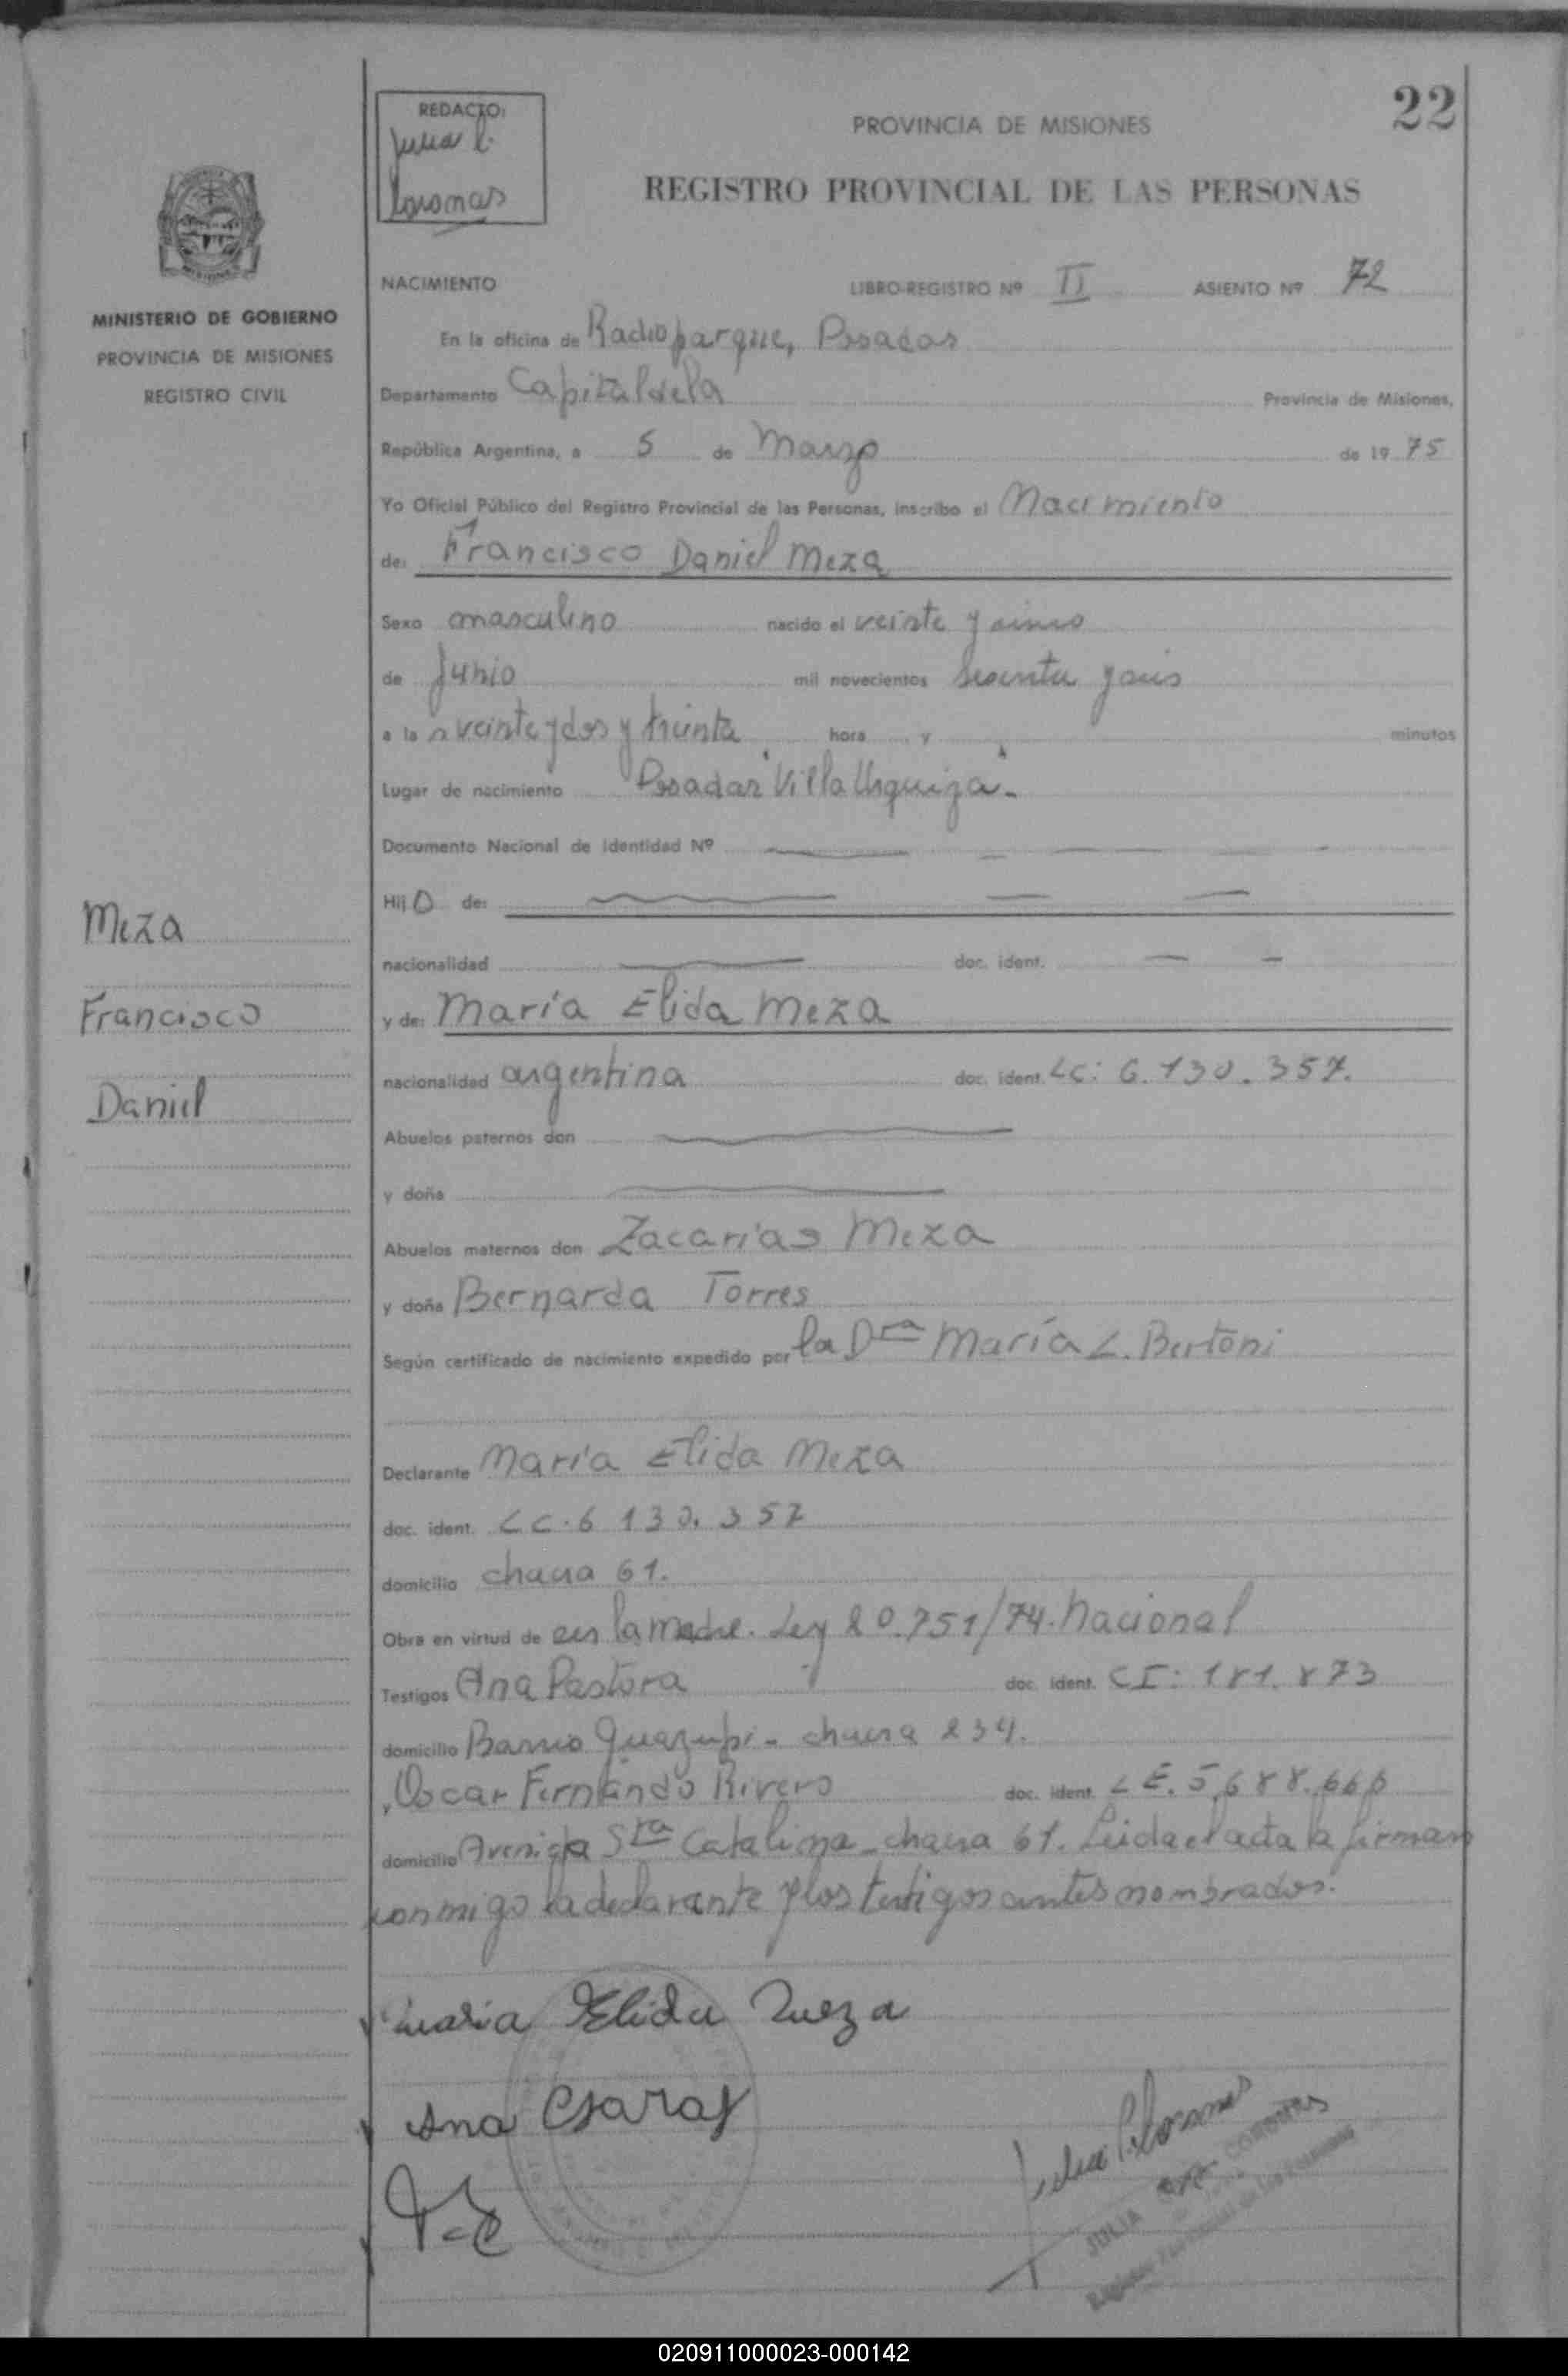 22
REDACTO:
Julia C.
Coronas
PROVINCIA DE MISIONES
REGISTRO PROVINCIAL DE LAS PERSONAS
MINISTERIO DE GOBIERNO
PROVINCIA DE MISIONES
REGISTRO CIVIL
NACIMIENTO LIBRO-REGISTRO Nº II ASIENTO Nº 72
En la oficina de Radioparque, Posadas
Departamento Capital de la Provincia de Misiones,
República Argentina, a 5 de Marzo de 19 75
Yo Oficial Público del Registro Provincial de las Personas, inscribo el Nacimiento
de: Francisco Daniel Meza
Sexo masculino nacido el veinte y cinco
de Junio mil novecientos sesenta y seis
a la s veinte y dos y treinta hora y minutos
Lugar de nacimiento Posadas "Villa Urquiza".-
Documento Nacional de Identidad Nº
Hij o de:
nacionalidad doc. ident.
y de: María Elida Meza
nacionalidad argentina doc. ident. LC: 6.130.357.
Abuelos paternos don
y doña
Abuelos maternos don Zacarías Meza
y doña Bernarda Torres
Según certificado de nacimiento expedido por la Dra María L. Bertoni
Declarante María Elida Meza
doc. ident. LC. 6 130. 357
domicilio chacra 61.
Obra en virtud de ser la madre. Ley 20.751/74. Nacional
Testigos Ana Pastora doc. ident. CI: 181.873
domicilio Barrio Guazupi - chacra 234.
Oscar Fernando Rivero doc. ident. LE. 5.688.666
domicilio Avenida Sta Catalina - chacra 61. Leida el acta la firman
conmigo la declarante y los testigos antes nombrados.
Meza
Francisco
Daniel
Maria Elida Meza
Ana
JULIA CORONAS
020911000023-000142